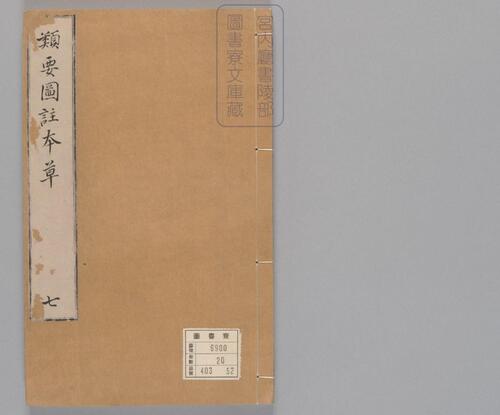 類要圖註本草
七
宮内廳書陵部
圖書寮文庫藏
圖書寮
6900
20
403 52